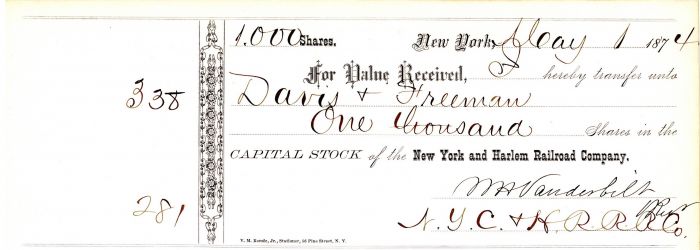 1.000 Shares. New York, May 1 1874
For Value Received, I hereby transfer unto
338
Davis & Freeman
One thousand Shares in the
CAPITAL STOCK of the New York and Harlem Railroad Company.
WH Vanderbilt
281
N. Y. C. & H. R. R. R. Co.
V. M. Kerole, Jr., Stationer, 16 Pine Street, N. Y.